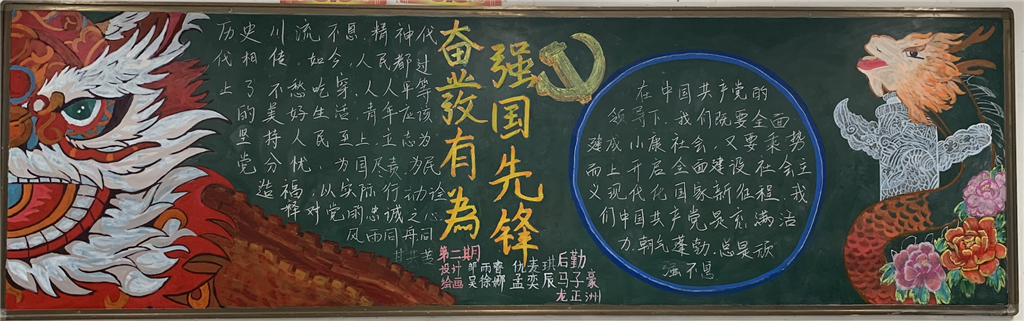 历史川流不息,精神代
代相传。如今,人民都过
上了不愁吃穿,人人平等
的美好生活,青年应该
坚持人民至上,立志为
党分忧,为国尽责,为民
造福,以实际行动诠
释对党的忠诚之心
风雨同舟,同
甘共苦
奋发有為
强国先锋
在中国共产党的
领导下,我们既要全面
建成小康社会,又要乘势
而上开启全面建设社会主
义现代化国家新征程。我
们中国共产党员充满活
力,朝气蓬勃,总是顽
强不息
第二期月
设计 邹雨睿 仇麦琪 后勤
绘画 吴徐娜 孟奕辰 马子豪
龙正洲